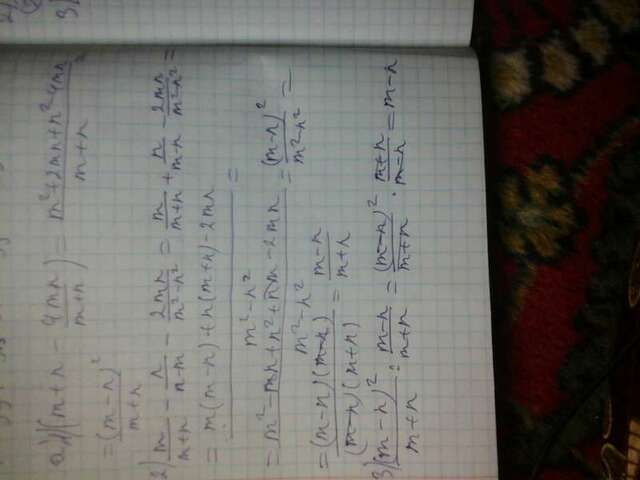 а) 1) (m+n - 4mn/(m+n)) = (m²+2mn+n² 4mn)/(m+n) =
= (m-n)²/(m+n)
2) m/(m+n) - n/(n-m) - 2mn/(m²-n²) = m/(m+n) + n/(m-n) - 2mn/(m²-n²) =
= (m(m-n)+n(m+n)-2mn)/(m²-n²) =
= (m²-mn+n²+nm-2mn)/(m²-n²) = (m-n)²/(m²-n²) =
= (m-n)(m-n)/((m-n)(m+n)) = (m-n)/(m+n)
3) (m-n)²/(m+n) : (m-n)/(m+n) = (m-n)²/(m+n) · (m+n)/(m-n) = m-n
2)
3)